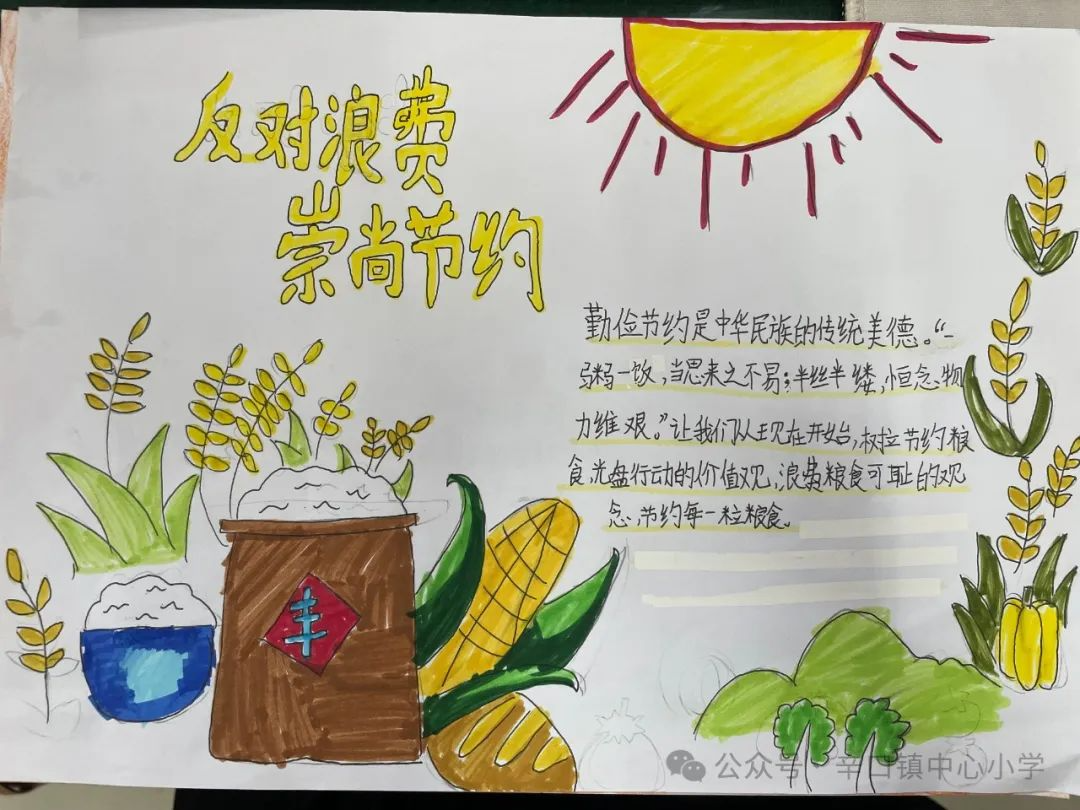 反对浪费
崇尚节约
勤俭节约是中华民族的传统美德。“一
粥一饭，当思来之不易；半丝半缕，恒念物
力维艰。”让我们从现在开始，树立节约粮
食，光盘行动的价值观，浪费粮食可耻的观
念，节约每一粒粮食。
丰
公众号·辛口镇中心小学